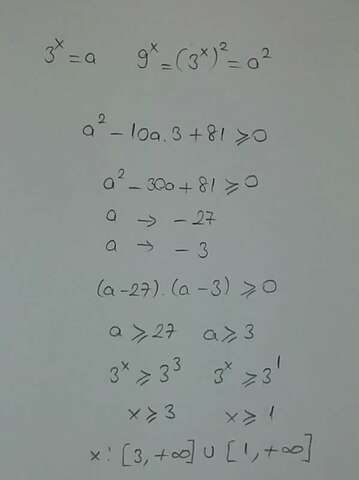 3^x = a   9^x = (3^x)^2 = a^2
a^2 - 10a.3 + 81 ⩾ 0
a^2 - 30a + 81 ⩾ 0
a → - 27
a → - 3
(a - 27).(a - 3) ⩾ 0
a ⩾ 27   a ⩾ 3
3^x ⩾ 3^3   3^x ⩾ 3^1
x ⩾ 3   x ⩾ 1
x: [3, +∞] ∪ [1, +∞]